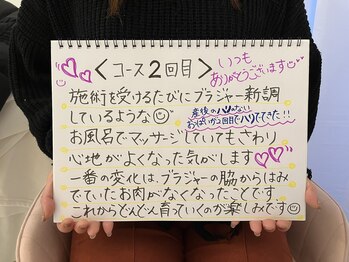 <コース2回目>
いつも
ありがとうございます
施術を受けるたびにブラジャー新調
しているような
産後のハリのない
おっぱいが2回目でハリでてきた!!
お風呂でマッサージしていてもさわり
心地がよくなった気がします
一番の変化は、ブラジャーの脇からはみ
でていたお肉がなくなったことです。
これからどんどん育っていくのが楽しみです